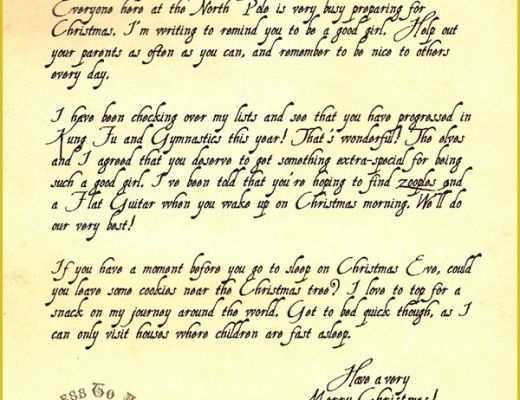 Everyone here at the North Pole is very busy preparing for
Christmas. I'm writing to remind you to be a good girl. Help out
your parents as often as you can, and remember to be nice to others
every day.
I have been checking over my lists and see that you have progressed in
Kung Fu and Gymnastics this year! That's wonderful! The elves
and I agreed that you deserve to get something extra-special for being
such a good girl. I've been told that you're hoping to find zooples and
a Flat Guitar when you wake up on Christmas morning. We'll do
our very best!
If you have a moment before you go to sleep on Christmas Eve, could
you leave some cookies near the Christmas tree? I love to top for a
snack on my journey around the world. Get to bed quick though, as I
can only visit houses where children are fast asleep.
Have a very
Merry Christmas!